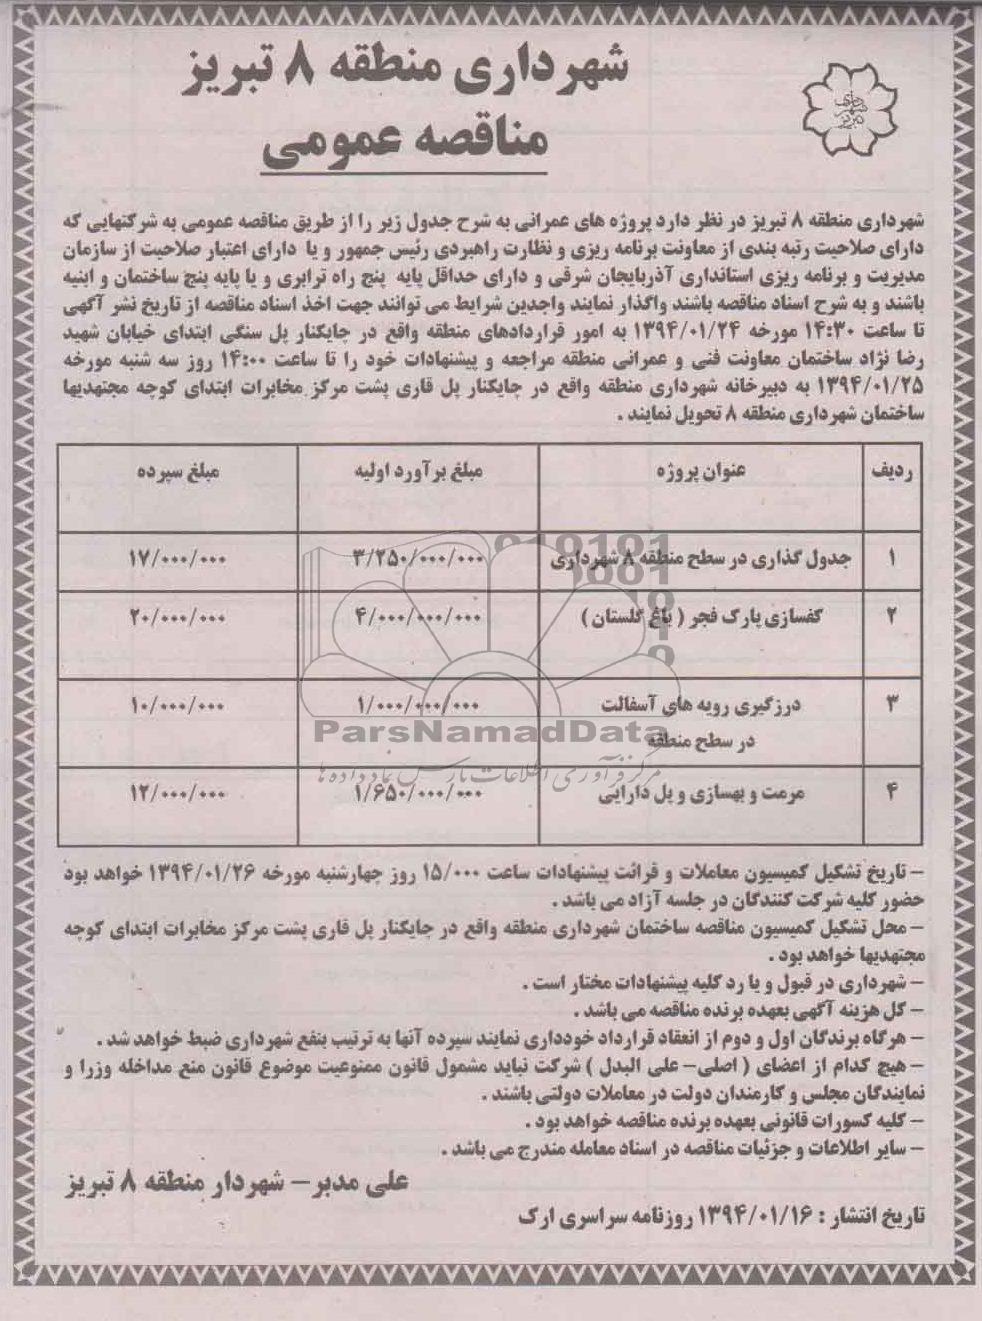 شهرداری منطقه ۸ تبریز
مناقصه عمومی
شهرداری منطقه ۸ تبریز در نظر دارد پروژه های عمرانی به شرح جدول زیر را از طریق مناقصه عمومی به شرکتهایی که
دارای صلاحیت رتبه بندی از معاونت برنامه ریزی و نظارت راهبردی رئیس جمهور و یا دارای اعتبار صلاحیت از سازمان
مدیریت و برنامه ریزی استانداری آذربایجان شرقی و دارای حداقل پایه پنج راه ترابری و یا پایه پنج ساختمان و ابنیه
باشند و به شرح اسناد مناقصه باشند واگذار نمایند واجدین شرایط می توانند جهت اخذ اسناد مناقصه از تاریخ نشر آگهی
تا ساعت ۱۴:۳۰ مورخه ۱۳۹۴/۰۱/۲۴ به امور قراردادهای منطقه واقع در چایکنار پل سنگی ابتدای خیابان شهید
رضا نژاد ساختمان معاونت فنی و عمرانی منطقه مراجعه و پیشنهادات خود را تا ساعت ۱۴:۰۰ روز سه شنبه مورخه
۱۳۹۴/۰۱/۲۵ به دبیرخانه شهرداری منطقه واقع در چایکنار پل قاری پشت مرکز مخابرات ابتدای کوچه مجتهدیها
ساختمان شهرداری منطقه ۸ تحویل نمایند .
ردیف عنوان پروژه مبلغ برآورد اولیه مبلغ سپرده
۱ جدول گذاری در سطح منطقه ۸ شهرداری ۳/۲۵۰/۰۰۰/۰۰۰ ۱۷/۰۰۰/۰۰۰
۲ کفسازی پارک فجر ( باغ گلستان ) ۴/۰۰۰/۰۰۰/۰۰۰ ۲۰/۰۰۰/۰۰۰
۳ درزگیری رویه های آسفالت ۱/۰۰۰/۰۰۰/۰۰۰ ۱۰/۰۰۰/۰۰۰
در سطح منطقه
ParsNamadData
مرکز فرآوری اطلاعات پارس نماد داده ها
۴ مرمت و بهسازی و پل دارایی ۱/۶۵۰/۰۰۰/۰۰۰ ۱۲/۰۰۰/۰۰۰
– تاریخ تشکیل کمیسیون معاملات و قرائت پیشنهادات ساعت ۱۵/۰۰۰ روز چهارشنبه مورخه ۱۳۹۴/۰۱/۲۶ خواهد بود
حضور کلیه شرکت کنندگان در جلسه آزاد می باشد .
– محل تشکیل کمیسیون مناقصه ساختمان شهرداری منطقه واقع در چایکنار پل قاری پشت مرکز مخابرات ابتدای کوچه
مجتهدیها خواهد بود .
– شهرداری در قبول و یا رد کلیه پیشنهادات مختار است .
– کل هزینه آگهی بعهده برنده مناقصه می باشد .
– هرگاه برندگان اول و دوم از انعقاد قرارداد خودداری نمایند سپرده آنها به ترتیب بنفع شهرداری ضبط خواهد شد .
– هیچ کدام از اعضای ( اصلی– علی البدل ) شرکت نباید مشمول قانون ممنوعیت موضوع قانون منع مداخله وزرا و
نمایندگان مجلس و کارمندان دولت در معاملات دولتی باشند .
– کلیه کسورات قانونی بعهده برنده مناقصه خواهد بود .
– سایر اطلاعات و جزئیات مناقصه در اسناد معامله مندرج می باشد .
علی مدبر– شهردار منطقه ۸ تبریز
تاریخ انتشار : ۱۳۹۴/۰۱/۱۶ روزنامه سراسری ارک